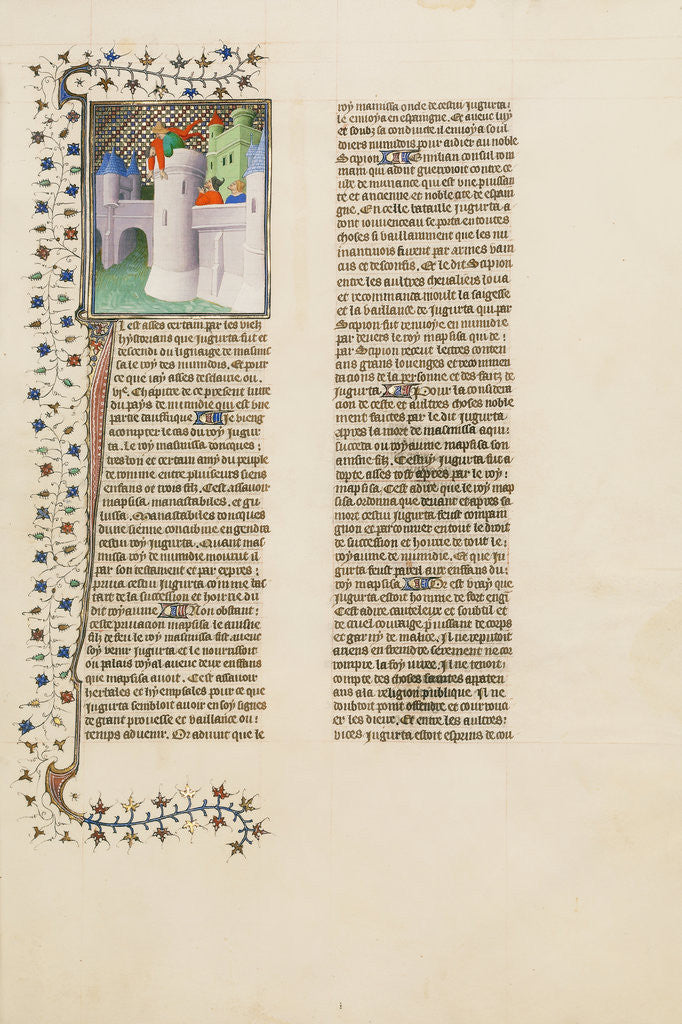 Il est asses certain par les vielz
hystorians que Jugurta fut et
descendi du lignaige de masinis
sa le roy des numidois. Et pour
ce que iay asses desclaire ou.
vi͛. Chapitre de ce present liure
du pays de numidie qui est une
partie daufrique Je vieng
a compter le cas du roy Jugur
ta. Le roy masinissa doncques:
tresloyal et certain amy du peuple
de romme entre pluseurs siens
enfans ot trois filz. Cest assauoir
mapsisa manastabiles. et gu
lussa. Manastabiles doncques
dune sienne concubine engendra
cestui roy Jugurta. Quant mas
inissa roy de numidie mourut il
par son testament et par expres:
priua cestui Jugurta comme bas
tart de la succession et hoirie du
dit royaume Non obstant:
ceste priuacion mapsisa le aisne
filz de feu le roy masinissa fist auec
soy venir Jugurta et le nourrissoit
ou palais royal auecques deux enffans
que mapsisa auoit. Cest assauoir
herbales et hyempsales pour ce que
Jugurta sembloit auoir en soy signes
de grant prouesse et vaillance ou:
temps aduenir. Or aduint que le
roy mansissa onde de cestui Jugurta:
le enuoya en espaingne. Et auecques luy
et soubz sa conduite il enuoya soul
doiers numidois pour aidier au noble
Scapion Emilian consul rom
main qui adont guerroioit contre ce
ulx de numance qui est une puissan
te et ancienne et noble cite de espain
gne. En celle bataille Jugurta a
dont iouuenceau se porta en toutes
choses si vaillamment que les nu
mantinois furent par armes vain
cus et desconfis. Et le dit Scapion
entre les aultres cheualiers loua
et recommanda moult la saigesse
et la vaillance de Jugurta qui par
Scapion fut renuoye en numidie
par deuers le roy mapsisa qui de:
par Scapion receut lectres conten
ans grans louenges et recommen
dacions de la personne et des faitz de
Jugurta Pour la considera
cion de ceste et aultres choses noble
ment faictes par le dit Jugurta
apres la mort de masinissa a qui:
succeda ou royaume mapsisa son
aisne filz. Cestuy Jugurta fut a
dopte asses tost apres par le roy:
mapsisa. Cest a dire que le roy map
sisa ordonna que deuant et apres sa
mort cestui Jugurta feust compain
gnon et parconnier en tout le droit
de succession et hoirie de tout le:
royaume de numidie. Et que Ju
gurta feust pareil aux enffans du:
roy mapsisa Or est vray que
Jugurta estoit homme de fort engin
Cest a dire cauteleux et soubtil et
de cruel couraige puissant de corps
et garny de malice. Il ne reputoit
a riens enfraindre serement ne cor
rompre la foy iuree. Il ne tenoit:
compte des choses saintes apparten
ans a la religion publique. Il ne
doubtoit point offendre et courrouc
er les dieux. Et entre les aultres:
vices Jugurta estoit esprins de cou